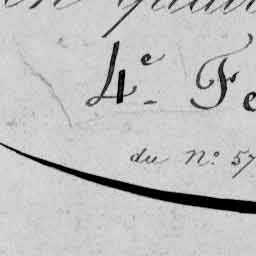 4e Fe
du No. 57